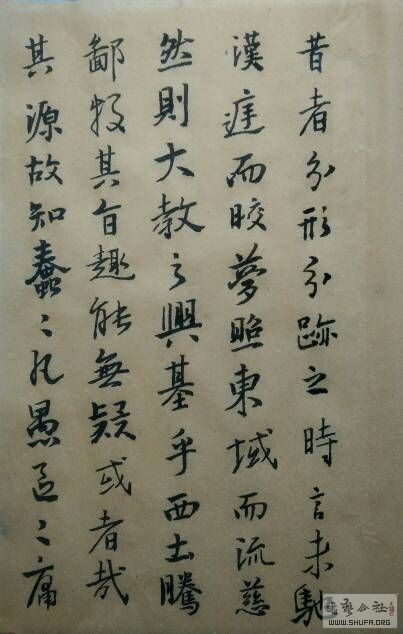 其源故知蠢〻凡愚區〻庸
鄙投其旨趣能無疑或者哉
然則大教之興基乎西土騰
漢庭而晈夢照東域而流慈
昔者分形分跡之時言未馳
WWW.SHUFA.ORG